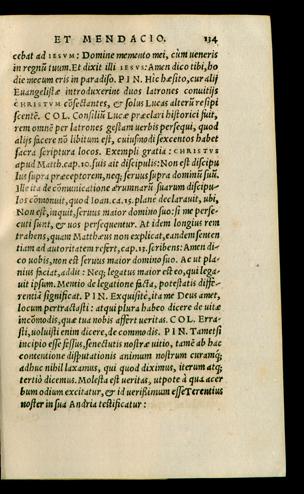 ET MENDACIO. 134
cebat ad IESVM: Domine memento mei, cùm ueneris
in regnũ tuum. Et dixit illi IESVS: Amen dico tibi, ho
die mecum eris in paradiso. PIN. Hic hæsito, cur alij
Euangelistæ introduxerint duos latrones conuitijs
CHRISTVM cõsectantes, & solus Lucas alterũ resipi
scentẽ. COL. Consiliũ Lucæ præclari historici fuit,
rem omnẽ per latrones gestam uerbis persequi, quod
alijs facere nõ libitum est, cuiusmodi sexcentos habet
sacra scriptura locos. Exempli gratia: CHRISTVS
apud Matth. cap. 10. suis ait discipulis: Non est discipu
lus supra præceptorem, neq; seruus supra dominũ suũ.
Ille ita de cõmunicatione ærumnarũ suarum discipu-
los cõmonuit, quod Ioan. ca. 15. planè declarauit, ubi,
Non est, inquit, seruus maior domino suo: si me perse-
cuti sunt, & uos persequentur. At idem longius rem
trahens, quam Matthæus non explicat, eandem senten
tiam ad autoritatem refert, cap. 13. scribens: Amen di-
co uobis, non est seruus maior domino suo. Ac ut pla-
nius faciat, addit: Neq; legatus maior est eo, qui lega-
uit ipsum. Mentio de legatione facta, potestatis diffe-
rentiã significat. PIN. Exquisitè, ita me Deus amet,
locum pertractasti: atqui plura habeo dicere de uitæ
incõmodis, quæ tua nobis affert ueritas. COL. Erra-
sti, uoluisti enim dicere, de commodis. PIN. Tametsi
incipio esse fessus, senectutis nostræ uitio, tamẽ ab hac
contentione disputationis animum nostrum curamq;
adhuc nihil laxamus, qui quod diximus, iterum atq;
tertiò dicemus. Molesta est ueritas, utpote à qua acer
bum odium excitatur, & id uerissimum esse Terentius
noster in sua Andria testificatur: